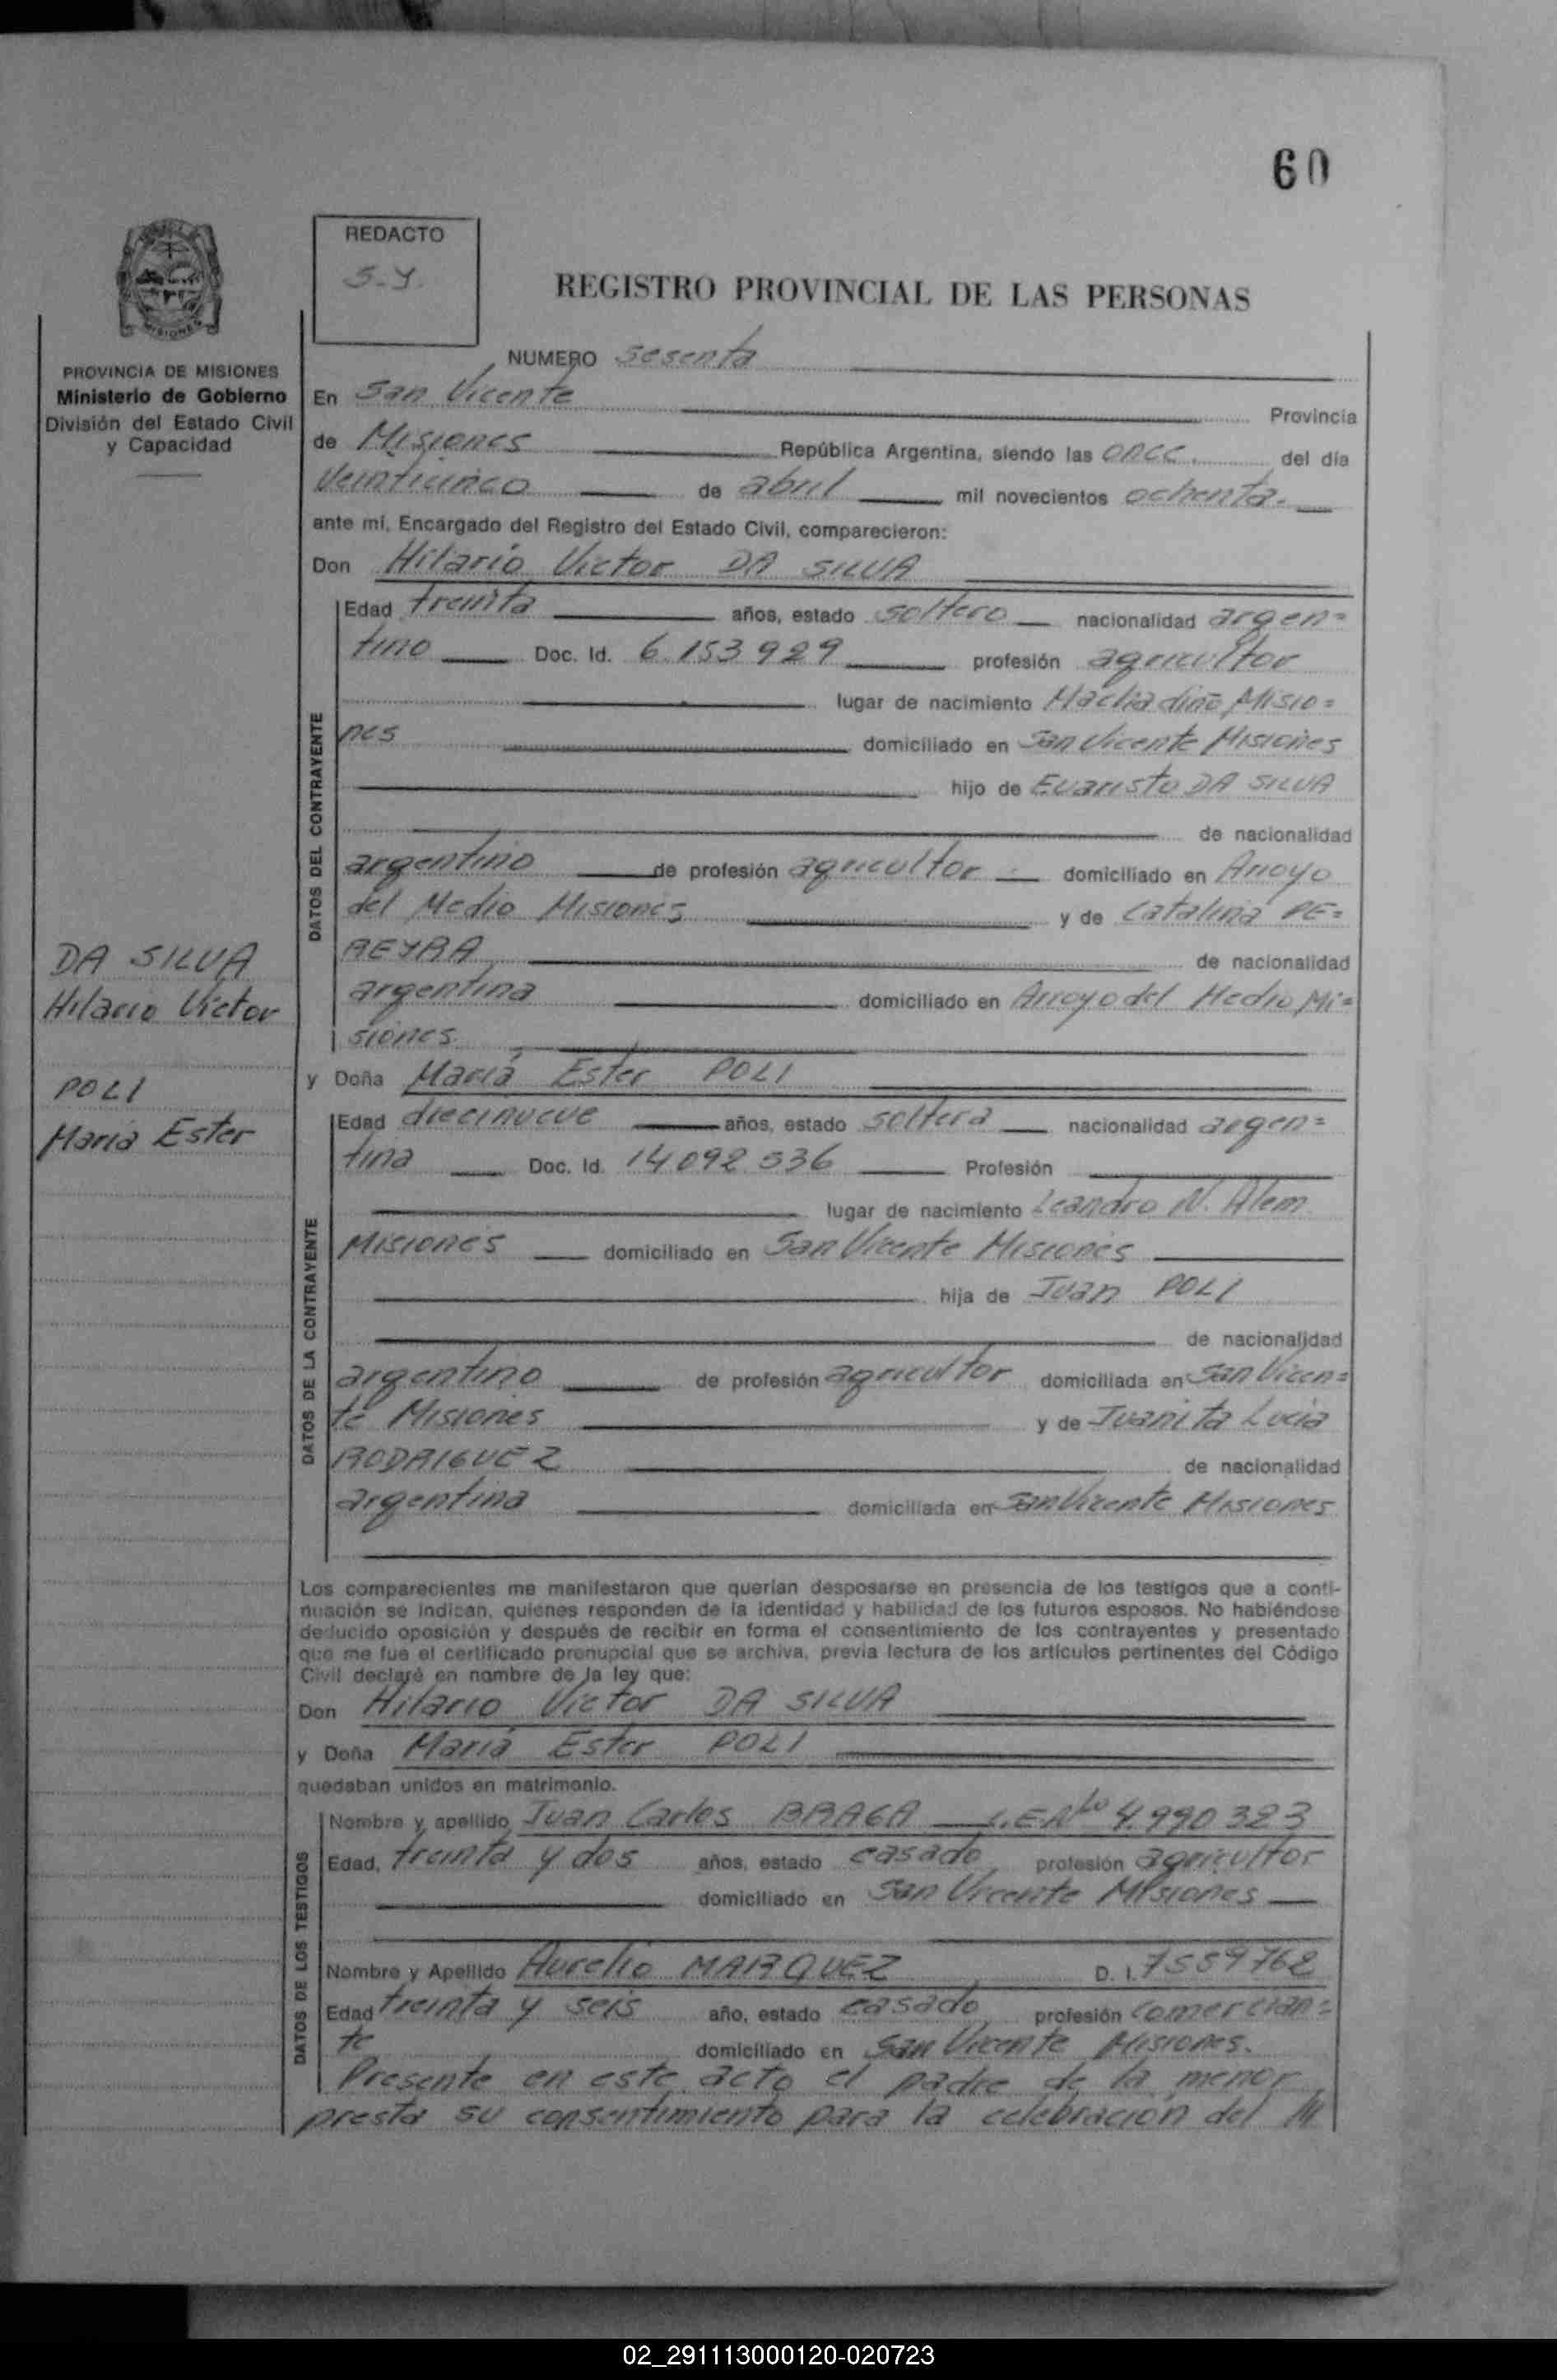 60
REDACTO
S-Y.
REGISTRO PROVINCIAL DE LAS PERSONAS
PROVINCIA DE MISIONES
Ministerio de Gobierno
División del Estado Civil
y Capacidad
NUMERO sesenta
En San Vicente Provincia
de Misiones República Argentina, siendo las once del día
veinticinco de abril mil novecientos ochenta.
ante mí, Encargado del Registro del Estado Civil, comparecieron:
Don Hilario Victor DA SILVA
DATOS DEL CONTRAYENTE
Edad treinta años, estado soltero nacionalidad argen=
tino Doc. Id. 6.153929 profesión agricultor
lugar de nacimiento Machadiño Misio=
nes domiciliado en San Vicente Misiones
hijo de Evaristo DA SILVA
de nacionalidad
argentino de profesión agricultor domiciliado en Arroyo
del Medio Misiones y de Catalina PE=
REYRA de nacionalidad
argentina domiciliado en Arroyo del Medio Mi=
siones
DA SILVA
Hilario Victor
POLI
Maria Ester
y Doña Maria Ester POLI
DATOS DE LA CONTRAYENTE
Edad diecinueve años, estado soltera nacionalidad argen=
tina Doc. Id. 14092.536 Profesión
lugar de nacimiento Leandro N. Alem
Misiones domiciliado en San Vicente Misiones
hija de Juan POLI
de nacionalidad
argentino de profesión agricultor domiciliada en San Vicen=
te Misiones y de Juanita Lucia
RODRIGUEZ de nacionalidad
argentina domiciliada en San Vicente Misiones
Los comparecientes me manifestaron que querían desposarse en presencia de los testigos que a conti-
nuación se indican, quienes responden de la identidad y habilidad de los futuros esposos. No habiéndose
deducido oposición y después de recibir en forma el consentimiento de los contrayentes y presentado
que me fue el certificado prenupcial que se archiva, previa lectura de los artículos pertinentes del Código
Civil declaré en nombre de la ley que:
Don Hilario Victor DA SILVA
y Doña Maria Ester POLI
quedaban unidos en matrimonio.
DATOS DE LOS TESTIGOS
Nombre y apellido Juan Carlos BRAGA L.E.Nº 4.990323
Edad, treinta y dos años, estado casado profesión agricultor
domiciliado en San Vicente Misiones
Nombre y Apellido Aurelio MARQUEZ D. I. 7559762
Edad treinta y seis año, estado casado profesión comercian=
te domiciliado en San Vicente Misiones.
Presente en este acto el padre de la menor
presta su consentimiento para la celebración del
02_291113000120-020723